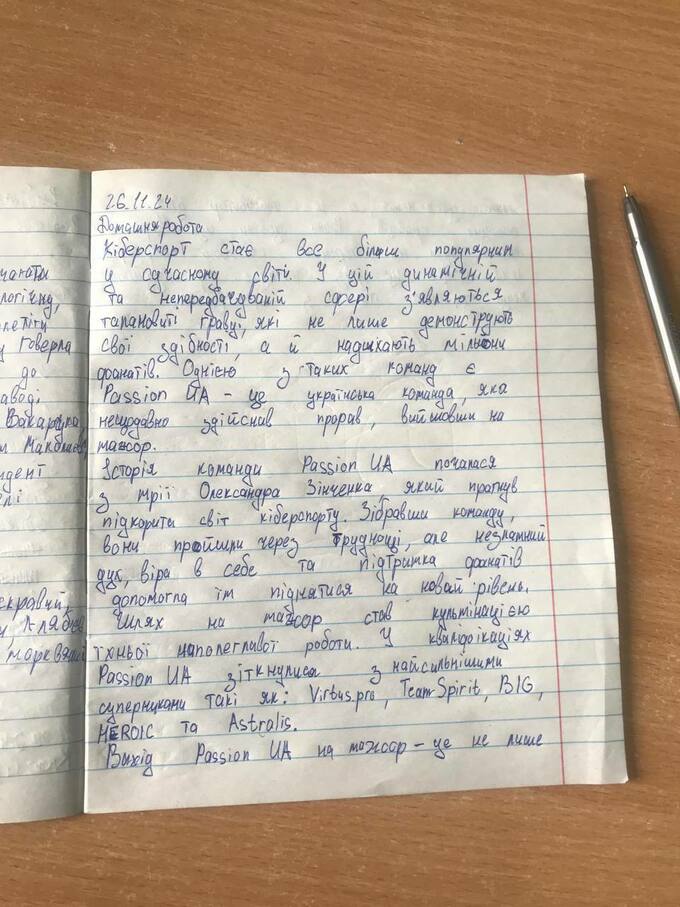 26.11.24
Домашня робота
Кіберспорт стає все більш популярним
у сучасному світі. У цій динамічній
та непередбачуваній сфері з'являються
талановиті гравці, які не лише демонструють
свої здібності, а й надихають мільйони
фанатів. Однією з таких команд є
Passion UA – це українська команда, яка
нещодавно здійснив прорав, вийшовши на
мажор.
Історія команди Passion UA почалася
з мрії Олександра Зінченка який прагнув
підкорити світ кіберспорту. Зібравши команду,
вони пройшли через труднощі, але незламний
дух, віра в себе та підтримка фанатів
допомогла їм піднятися на новий рівень.
Шлях на мажор став культінацією
їхньої наполегливої роботи. У кваліфікаціях
Passion UA зіткнулися з найсильнішими
суперниками такі як: Virtus.pro, Team Spirit, BIG,
HEROIC та Astralis.
Вихід Passion UA на мажор – це не лише
логічну,
Говерла
до
Вакарчука,